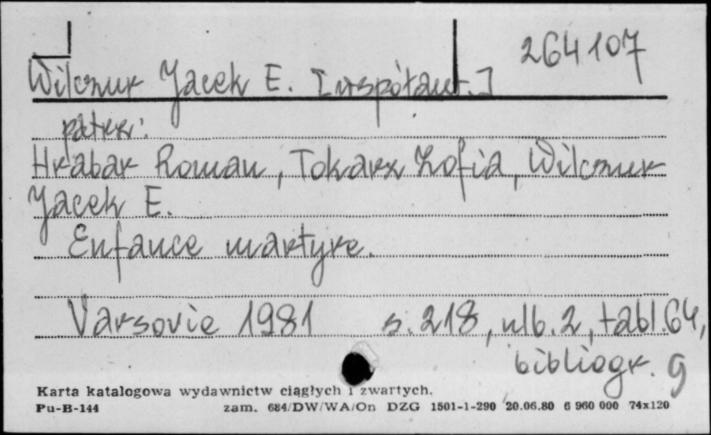 264107
Wilczur Jacek E. [współaut.]
patrz:
Hrabar Roman, Tokarz Zofia, Wilczur
Jacek E.
Enfance martyre.
Varsovie 1981 s. 218, nlb. 2, tabl. 64,
bibliogr. g
Karta katalogowa wydawnictw ciągłych i zwartych.
Pu-B-144 zam. 684/DW/WA/On DZG 1501-1-290 20.06.80 6 960 000 74x120